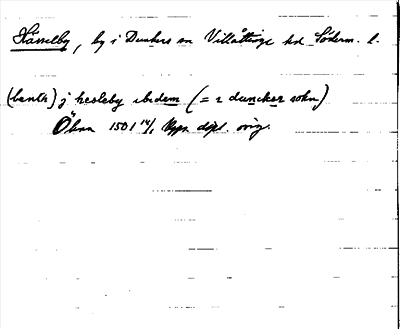 Hässelby, by i Dunkers sn Villåttinge hd Söderm. l.
(bentk) j hesleby ibidem (= i duncker sokn)
Öbnn 1501 14/1 Upps. dipl. orig.